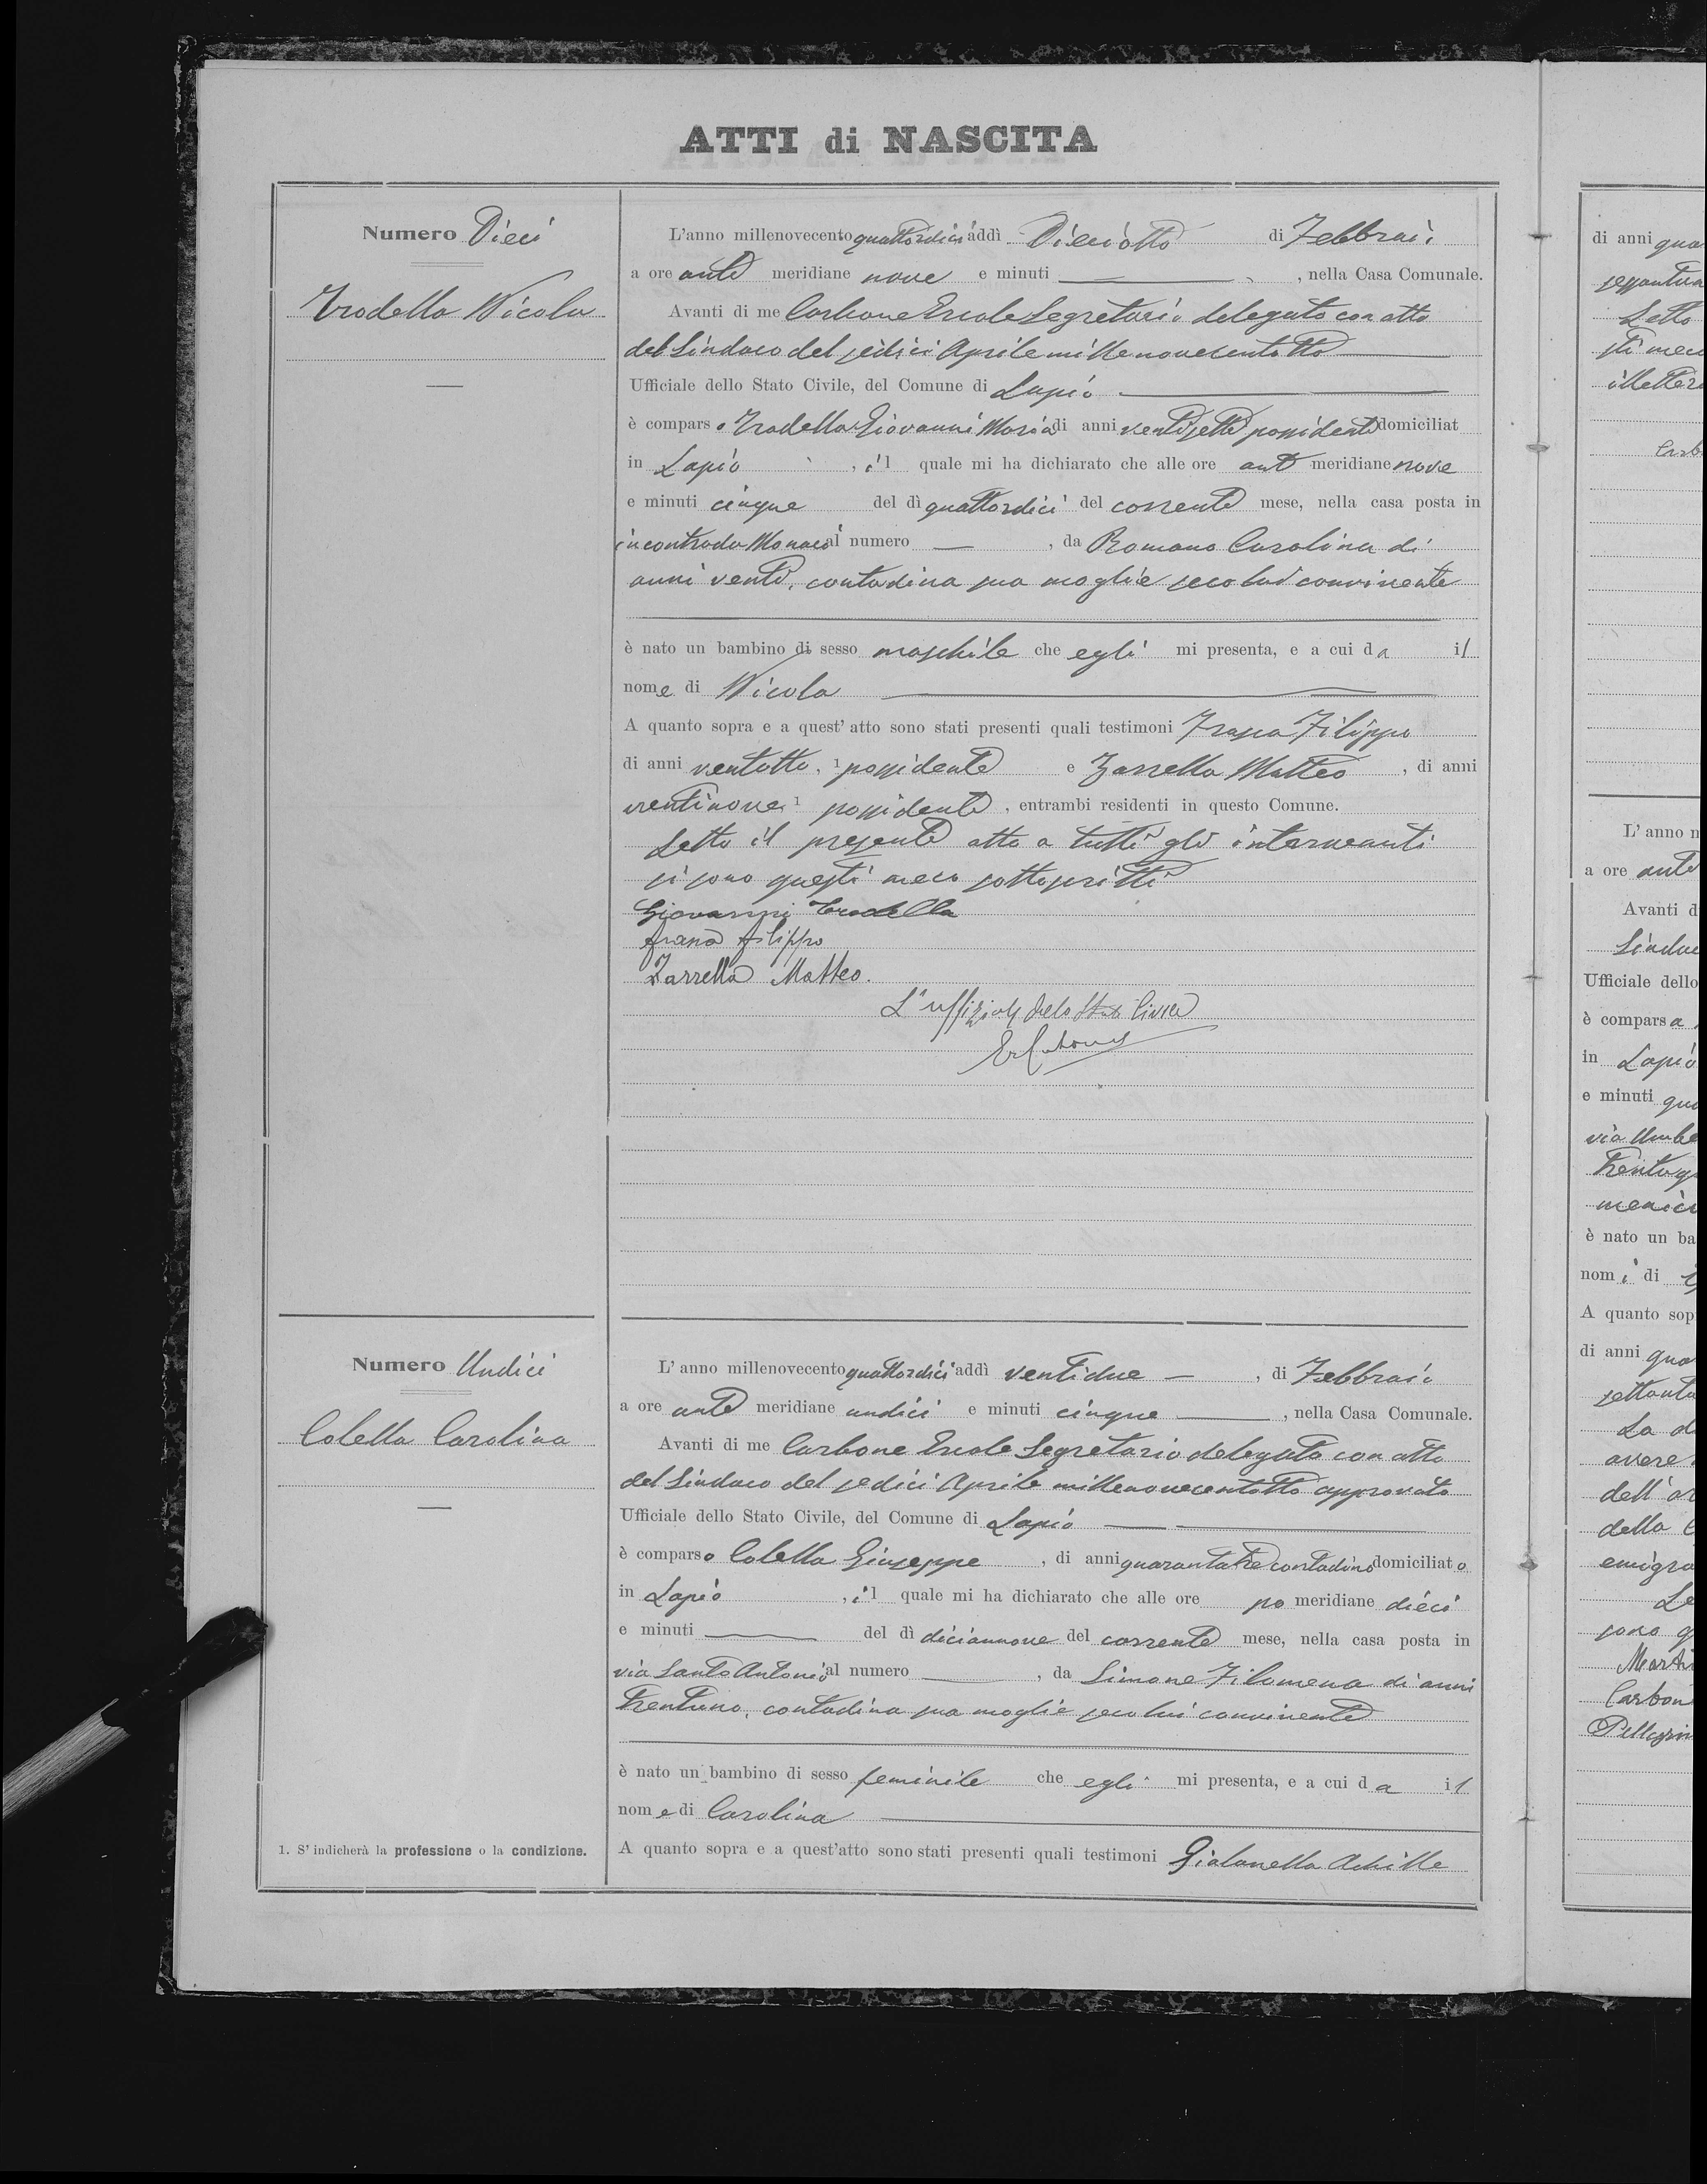 ATTI di NASCITA
Numero Dieci
Trodella Nicola
L'anno millenovecento quattordici addì Dieciotto di Febbraio
a ore ante meridiane nove e minuti , nella Casa Comunale.
Avanti di me Carbone Ercole Segretario delegato con atto
del Sindaco del sedici Aprile millenovecentotto
Ufficiale dello Stato Civile, del Comune di Lapio
è comparso Trodella Giovanni Maria di anni ventisette possidente domiciliat
in Lapio , il quale mi ha dichiarato che alle ore ant meridiane nove
e minuti cinque del dì quattordici del corrente mese, nella casa posta in
in contrada Monaco al numero — , da Romano Carolina di
anni venti, contadina sua moglie seco lui convivente
è nato un bambino di sesso maschile che egli mi presenta, e a cui da il
nome di Nicola
A quanto sopra e a quest' atto sono stati presenti quali testimoni Filippo
di anni ventotto, 1 possidente e Zarrella Matteo , di anni
ventinove 1 possidente, entrambi residenti in questo Comune.
Letto il presente atto a tutti gli intervenuti
si sono questi meco sottoscritti
Giovanni Trodella
filippo
Zarrella Matteo.
L'uffiziale dello Stato Civile
Numero Undici
Colella Carolina
L' anno millenovecento quattordici addì ventidue — , di Febbraio
a ore ante meridiane undici e minuti cinque , nella Casa Comunale.
Avanti di me Carbone Ercole Segretario delegato con atto
del Sindaco del sedici Aprile millenovecentotto approvato
Ufficiale dello Stato Civile, del Comune di Lapio
è comparso Colella Giuseppe , di anni quarantatre contadino domiciliato
in Lapio , il quale mi ha dichiarato che alle ore po meridiane dieci
e minuti del dì diciannove del corrente mese, nella casa posta in
via Santo Antonio al numero , da Simone Filomena di anni
trentuno, contadina sua moglie seco lui convivente
è nato un bambino di sesso feminile che egli mi presenta, e a cui da il
nome di Carolina
1. S' indicherà la professione o la condizione.
A quanto sopra e a quest'atto sono stati presenti quali testimoni Gialanella Achille
di anni qua
Letto
L' anno n
a ore ante
Avanti d
Ufficiale dello
è comparsa
in Lapio
e minuti
è nato un ba
nomi di
A quanto sop
di anni qua
La d
avere
dell'
della
emigra
Le
sono q
Carbon